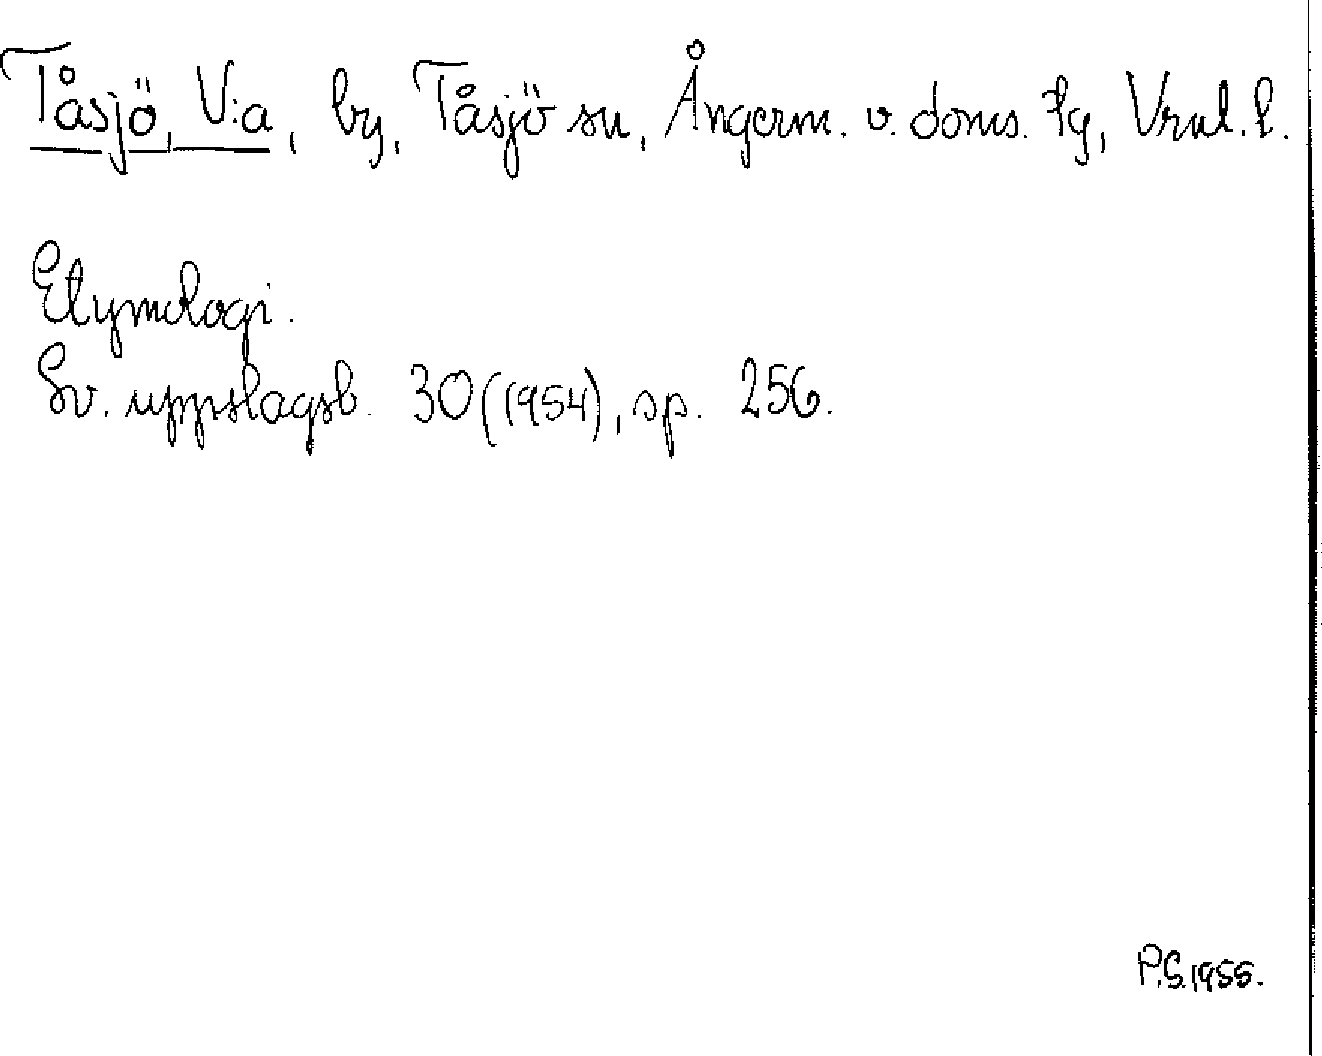 Tåsjö, V:a, by, Tåsjö sn, Ångerm. v. doms. tg, Vrnl. l.
Etymologi.
Sv. uppslagsb. 30 (1954), sp. 256.
P.S. 1955.